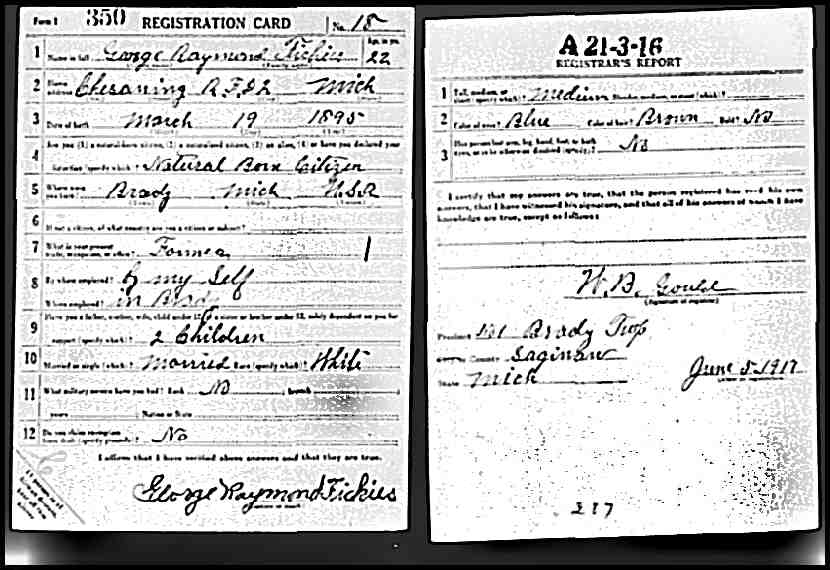 Form 1 350 REGISTRATION CARD No. 18
1 Name in full George Raymond Fickies Age, in yrs. 22
2 Home address Chesaning R.F.D 2 Mich
3 Date of birth March 19 1895
4 Are you (1) a natural-born citizen, (2) a naturalized citizen, (3) an alien, (4) or have you declared your
intention (specify which)? Natural Born Citizen
5 Where were you born? Brady Mich U.S.A
6 If not a citizen, of what country are you a citizen or subject?
7 What is your present trade, occupation, or office? Farmer 1
8 By whom employed? By my Self
Where employed? in Brady
9 Have you a father, mother, wife, child under 12, or a sister or brother under 12, solely dependent on you for
support (specify which)? 2 Children
10 Married or single (which)? Married Race (specify which)? White
11 What military service have you had? Rank No branch
years Nation or State
12 Do you claim exemption from draft (specify grounds)? No
I affirm that I have verified above answers and that they are true.
George Raymond Fickies
A 21-3-16
REGISTRAR'S REPORT
1 Tall, medium, or short (specify which)? Medium Slender, medium, or stout (which)?
2 Color of eyes? Blue Color of hair? Brown Bald? No
3 Has person lost arm, leg, hand, foot, or both
eyes, or is he otherwise disabled (specify)? No
I certify that my answers are true, that the person registered has read his own
answers, that I have witnessed his signature, and that all of his answers of which I have
knowledge are true, except as follows:
W. B. Gould
(Signature of registrar)
Precinct 1st Brady Twp
County Saginaw
State Mich June 5-1917
217